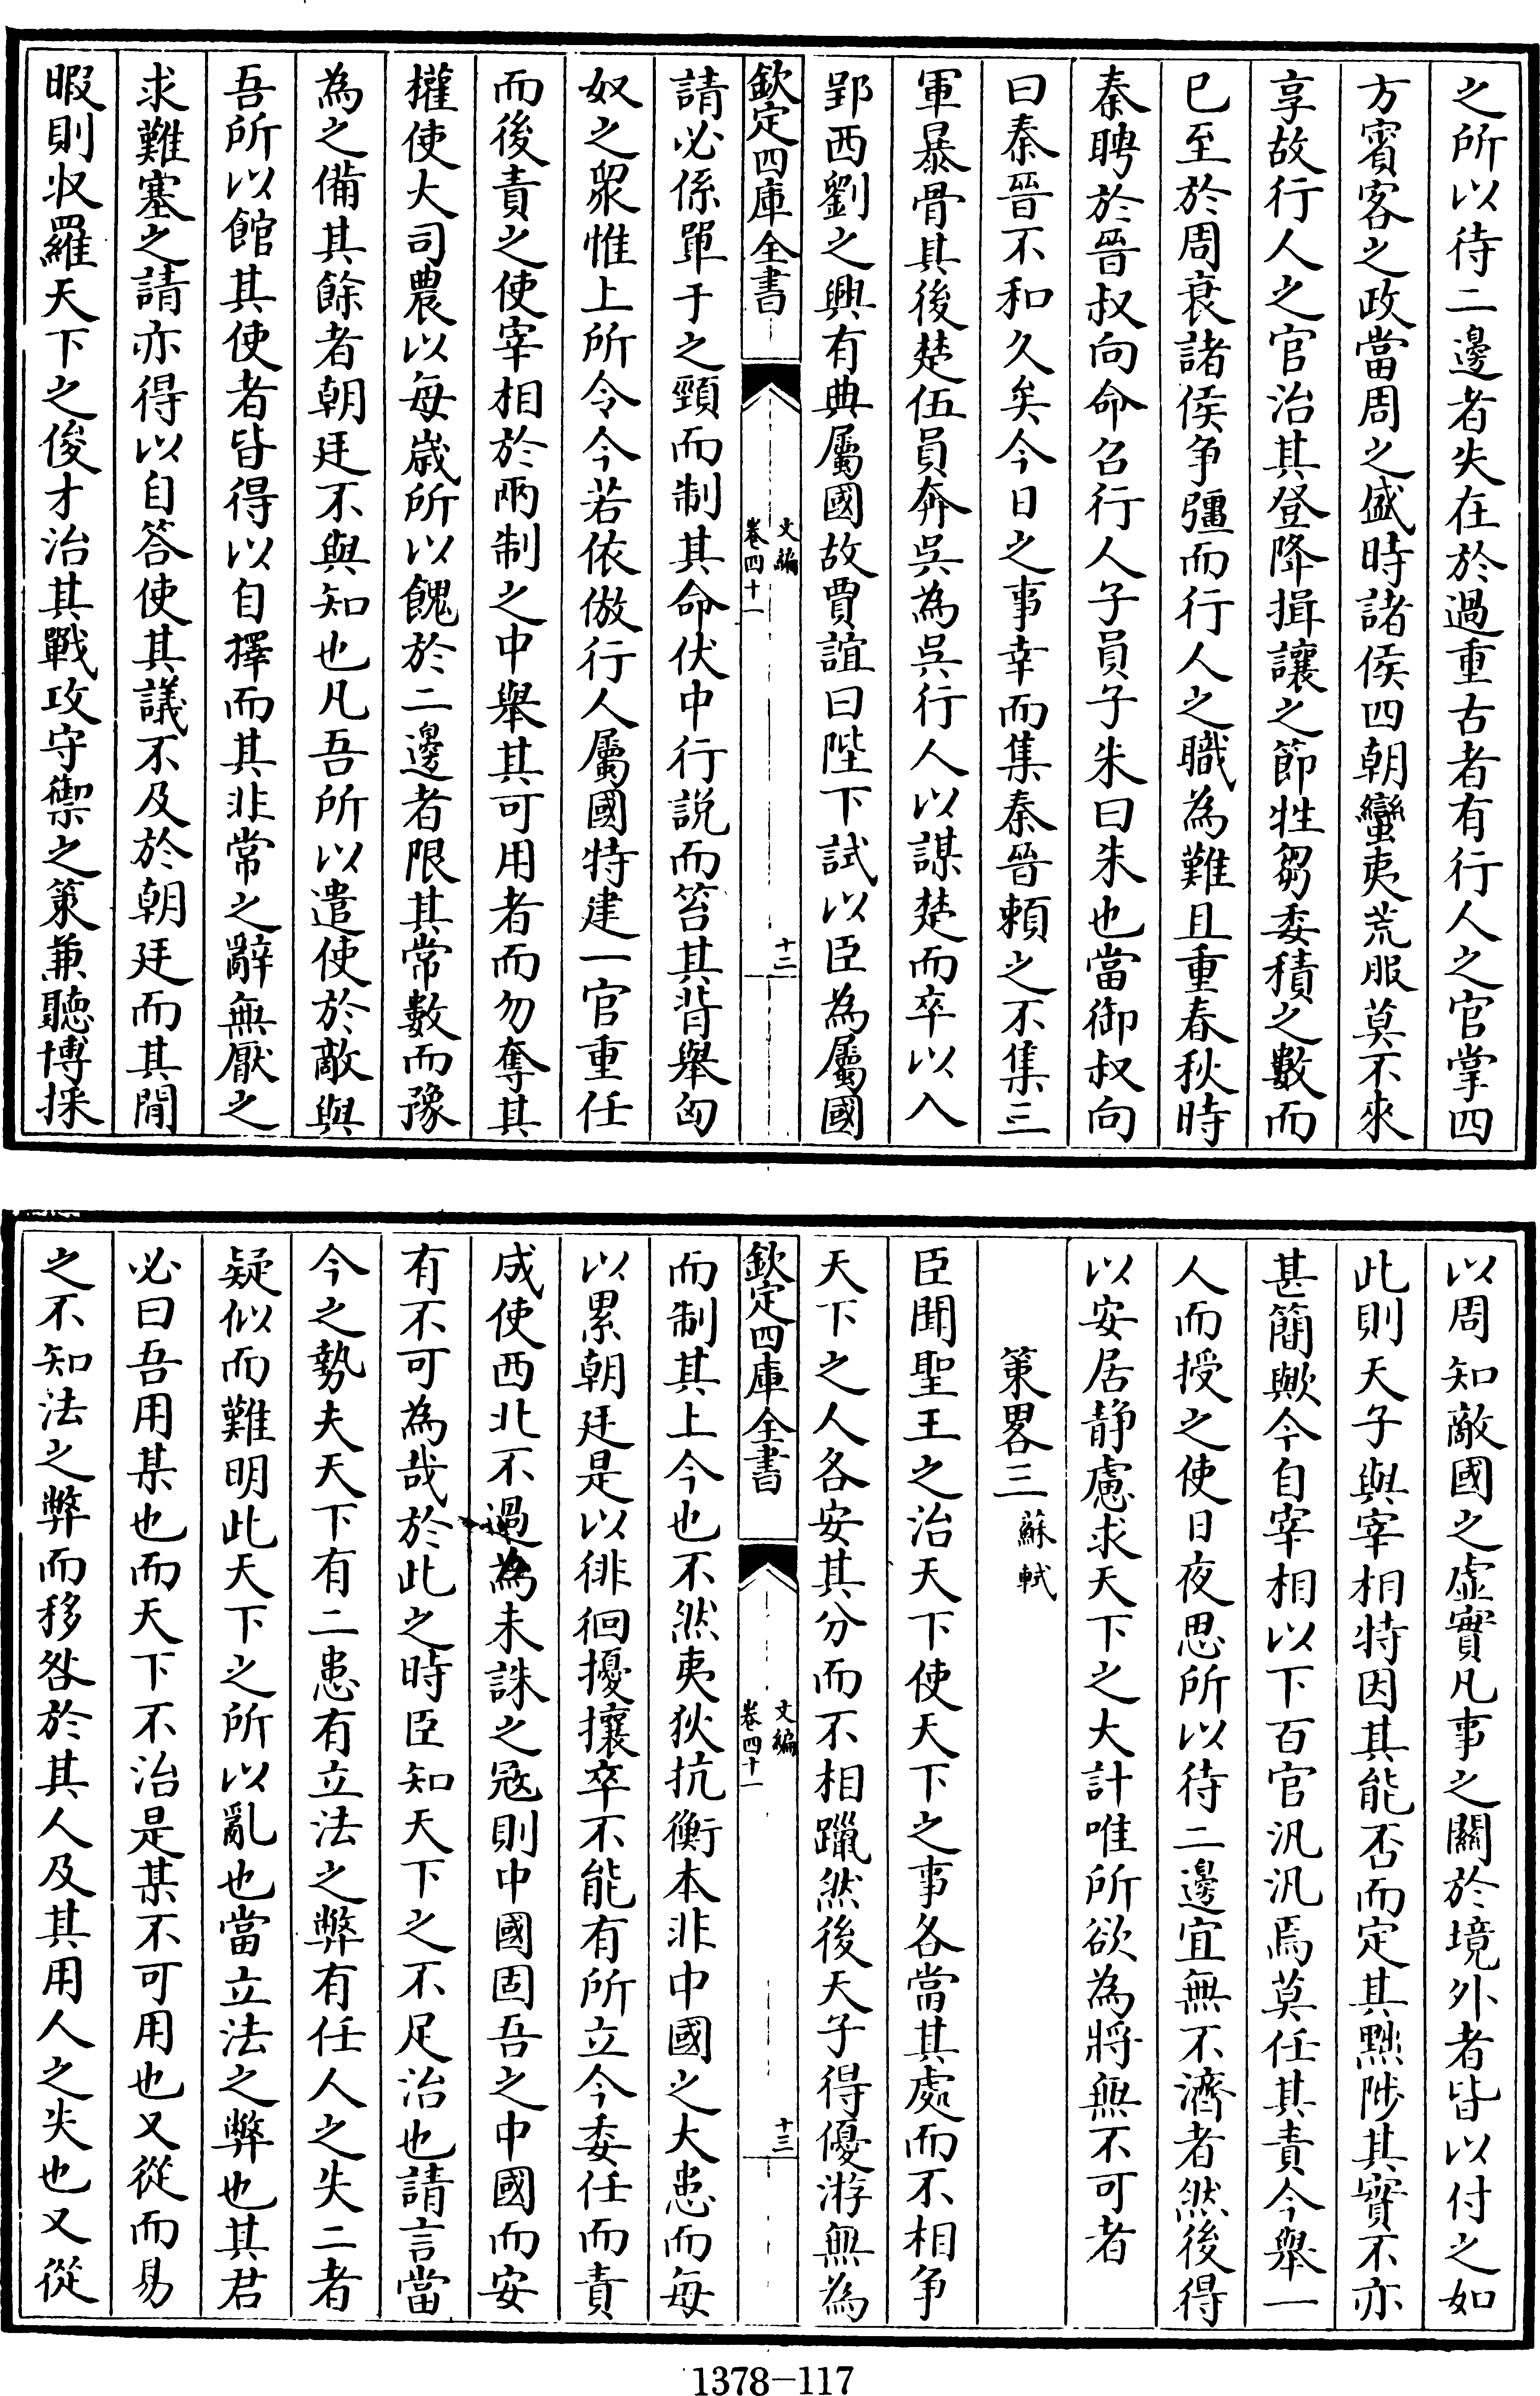 之所以待二邊者失在於過重古者有行人之官掌四
方賓客之政當周之盛時諸侯四朝蠻夷荒服莫不來
享故行人之官治其登降揖讓之節牲芻委積之數而
已至於周衰諸侯争彊而行人之職為難且重春秋時
秦聘於晉叔向命召行人子員子朱曰朱也當御叔向
曰秦晉不和久矣今日之事幸而集秦晉賴之不集三
軍暴骨其後楚伍員奔吳為吳行人以謀楚而卒以入
郢西劉之興有典屬國故賈誼曰陛下試以臣為屬國
欽定四庫全書
文編
卷四十一
十二
請必係單于之頸而制其命伏中行説而笞其背舉匈
奴之衆惟上所令今若依倣行人屬國特建一官重任
而後責之使宰相於兩制之中舉其可用者而勿奪其
權使大司農以每歲所以餽於二邊者限其常數而豫
為之備其餘者朝廷不與知也凡吾所以遣使於敵與
吾所以館其使者皆得以自擇而其非常之辭無厭之
求難塞之請亦得以自答使其議不及於朝廷而其閒
暇則收羅天下之俊才治其戰攻守禦之策兼聽博採
以周知敵國之虛實凡事之關於境外者皆以付之如
此則天子與宰相特因其能否而定其黜陟其實不亦
甚簡歟今自宰相以下百官汎汎焉莫任其責今舉一
人而授之使日夜思所以待二邊宜無不濟者然後得
以安居静慮求天下之大計唯所欲為將無不可者
策畧三蘇軾
臣聞聖王之治天下使天下之事各當其處而不相争
天下之人各安其分而不相躐然後天子得優游無為
欽定四庫全書
文編
卷四十一
十三
而制其上今也不然夷狄抗衡本非中國之大患而每
以累朝廷是以徘徊擾攘卒不能有所立今委任而責
成使西北不過為未誅之寇則中國固吾之中國而安
有不可為哉於此之時臣知天下之不足治也請言當
今之勢夫天下有二患有立法之弊有任人之失二者
疑似而難明此天下之所以亂也當立法之弊也其君
必曰吾用某也而天下不治是某不可用也又從而易
之不知法之弊而移咎於其人及其用人之失也又從
1378-117